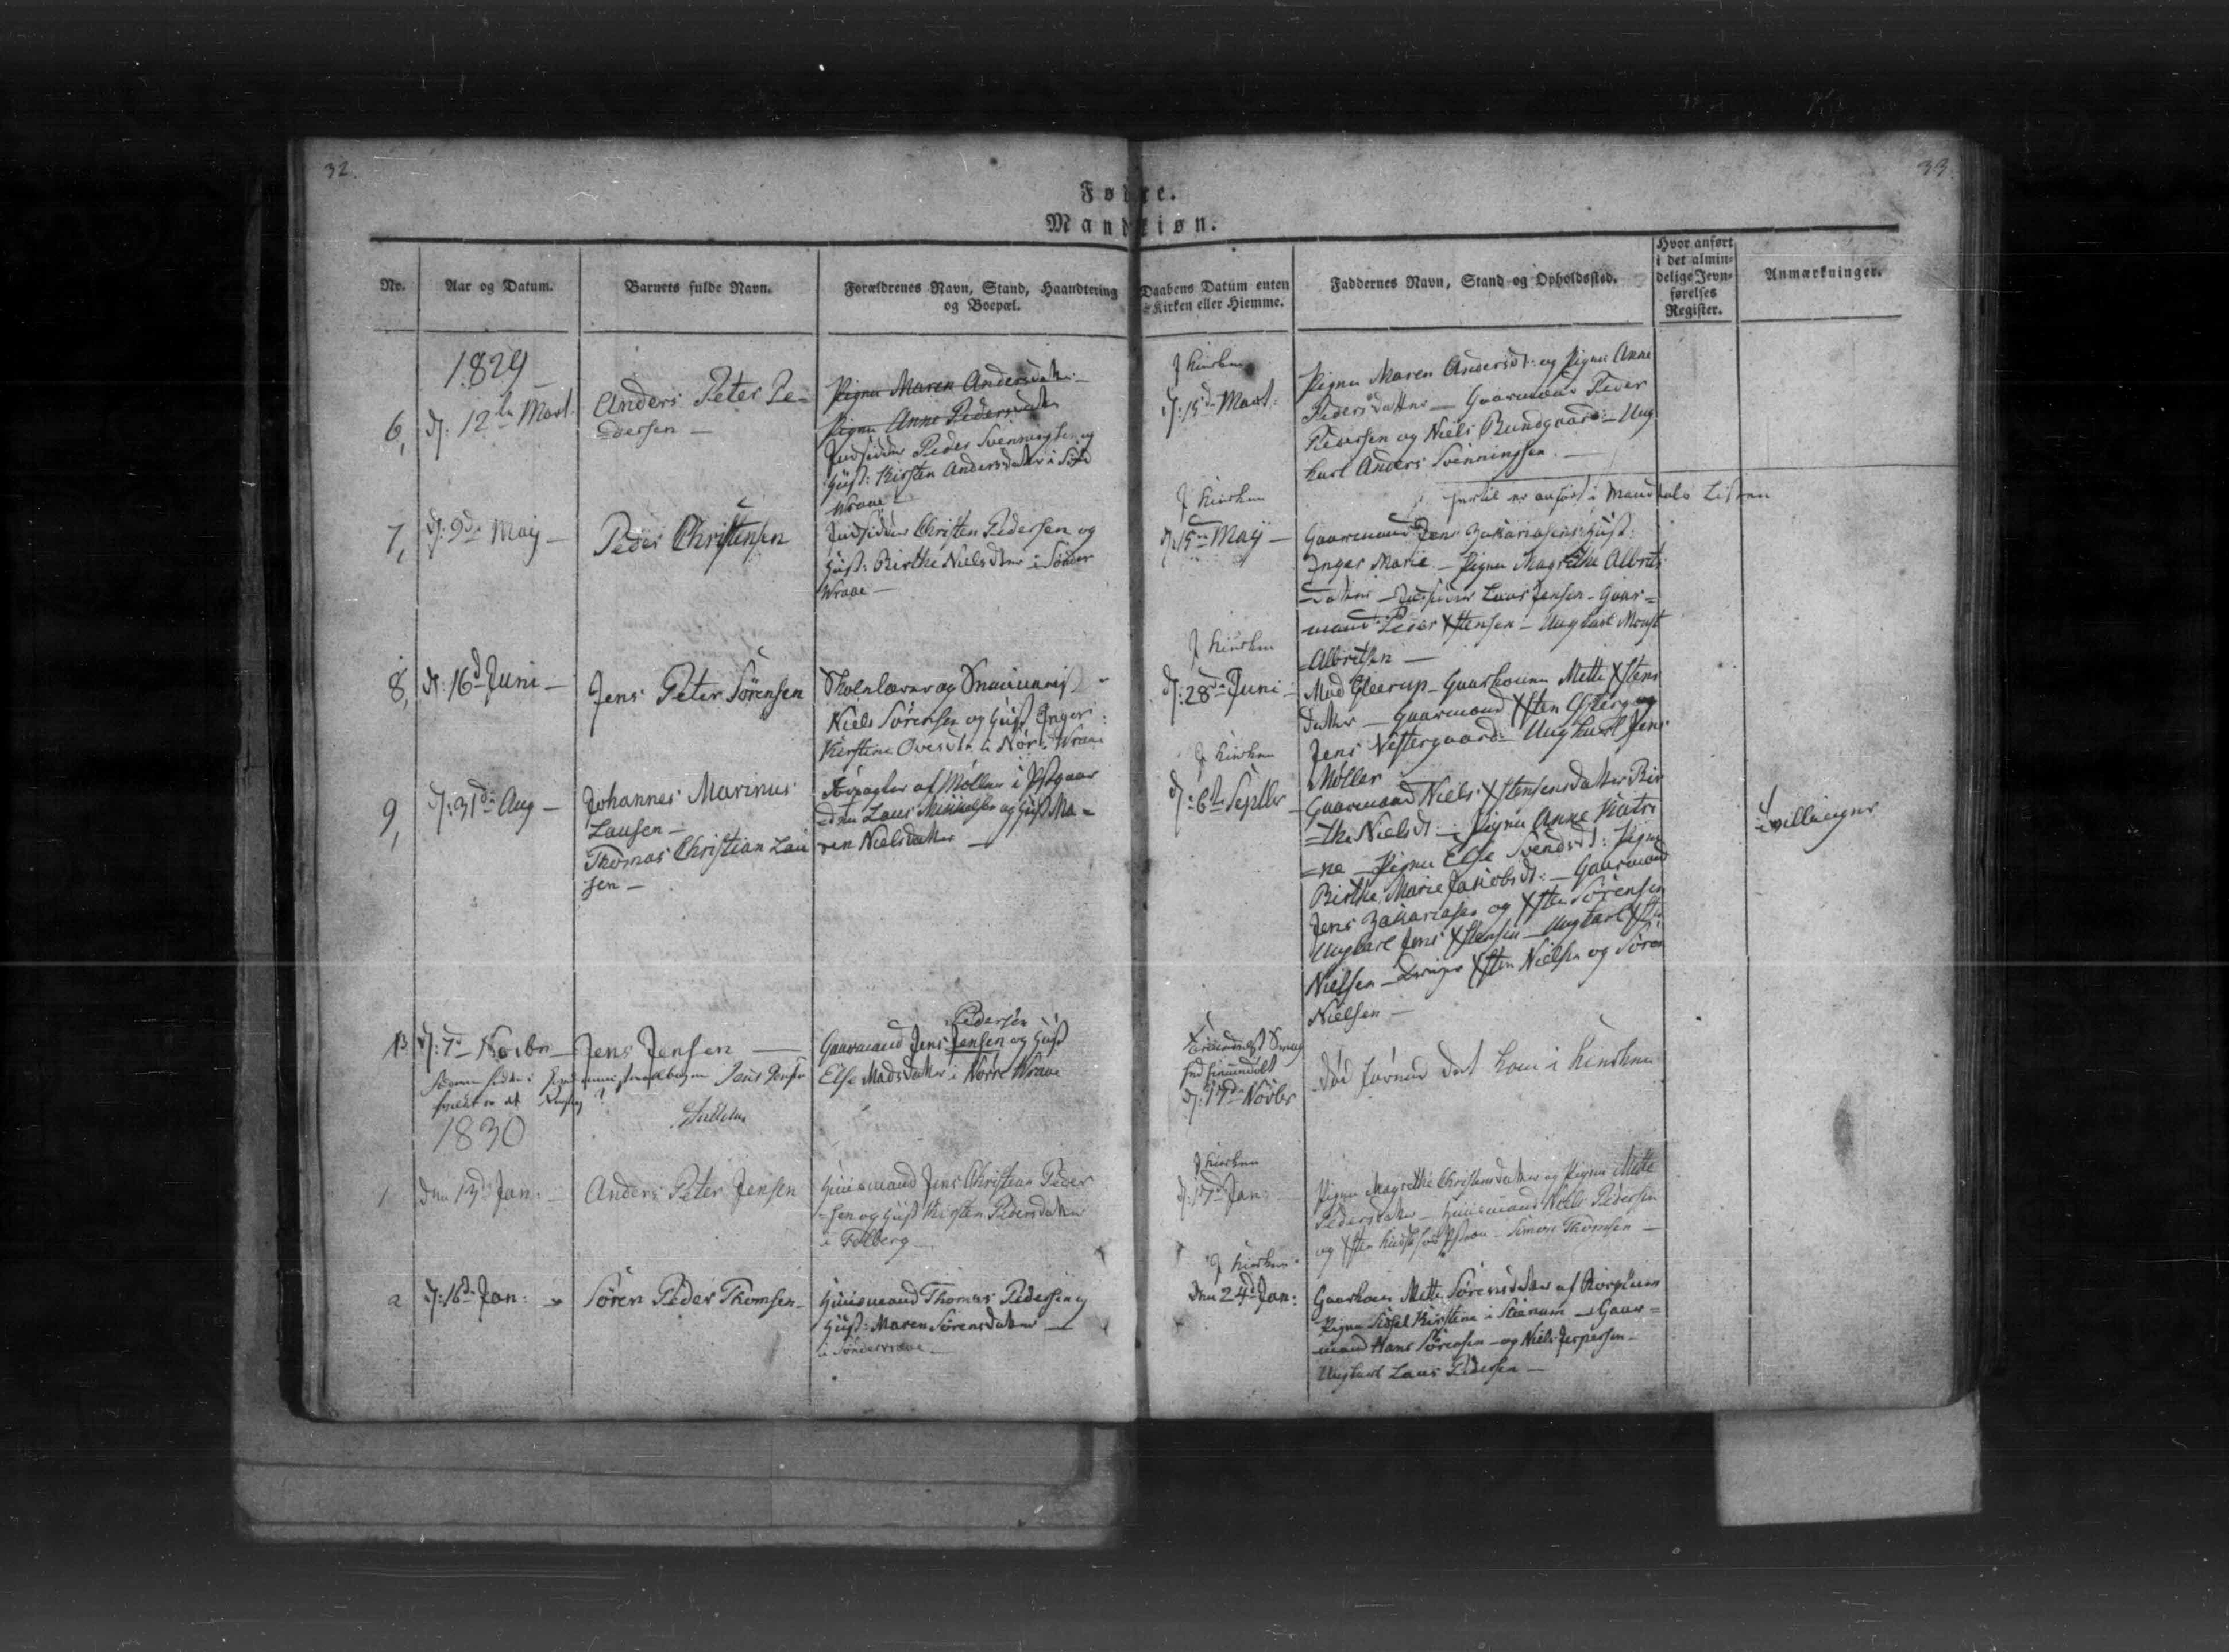 32.
33
Fødte.
Mandkiøn.
No.
Aar og Datum.
Barnets fulde Navn.
Forældrenes Navn, Stand, Haandtering
og Boepæl.
Daabens Datum enten
i Kirken eller Hiemme.
Faddernes Navn, Stand og Opholdssted.
Hvor anført
i det almin-
delige Jevn-
førelses
Register.
Anmærkninger.
1829
6,
d: 12te Mart.
Anders Peter Pe=
dersen —
Pigen Maren Andersdatter
Pigen Anne Pedersdatter
Indsidder Peder Svenningsen og
Hust: Kirsten Andersdatter i
Wraae
I Kirken
d: 15de Mart:
Pigen Maren Andersdt: og Pigen Anne
Pedersdatter — Gaarmand Peder
Pedersen og Niels Bundgaard — Ung
karl Anders Svenningsen —
hertil er anført i Mandtals Listen
7,
d: 9de Maij —
Peder Christensen
Indsidder Christen Pedersen og
Hust: Birthe Nielsdtter i Sønder
Wraae —
I Kirken
d: 15de Maij —
Gaarmand Jens Zakariasens Hust:
Inger Marie — Pigen Magrethe Albrets
datter — Indsidder Laus Jensen — Gaar=
mand Peder Xstensen — Ungkarl
Albretsen —
8,
d: 16d Juni —
Jens Peter Sörensen
Skolelærer og
Niels Sörensen og Hust Inger
Kirstine Ovesdtr i Nör: Wraae
I Kirken
d: 28de Juni —
Mad Gleerup — Gaarkonen Mette Xstens
datter — Gaarmand Xsten Østergrd og
Jens Vestergaard — Ungkarl Jens
Møller —
9,
d: 31de Aug —
Johannes Marinus
Lausen —
Thomas Christian Lau
sen —
Forpagter af Møllen i
Laus Mikkelsen og Hust Ma=
ren Nielsdatter —
I Kirken
d: 6te Septbr —
Gaarmand Niels Xstensens datter Bir
=the Nielsdt: — Pigen Anne Katri
=ne — Pigen Else Svendsdt: Pigen
Birthe Marie Jakobsdt: — Gaarmand
Jens Zakariasen og Xsten Sörensen
Ungkarl Jens Xstensen — Ungkarl Xsten
Nielsen — Drenge Xsten Nielsen og Sören
Nielsen —
Tvillinger
d: 7de Novbr —
Jens Jensen —
Pedersen
Gaarmand Jens Jensen og Hust
Else Madsdatter i Nörre Wraae
d: 17de Novbr
Död forend det kom i Kirken
1830
1
den 13de Jan: —
Anders Peter Jensen
Huusmand Jens Christian Peder
=sen og Hust Kirsten Pedersdatter
i Folberg —
I Kirken
d: 17de Jan:
Pigen Magrethe Christensdatter og Pigen Mette
Pedersdatter — Huusmand Niels Pedersen
og Xsten — Simon Thomsen —
2
d: 16de Jan: —
Sören Peder Thomsen —
Huusmand Thomas Pedersen og
Hust: Maren Sörensdatter —
i Sönderwraae —
I Kirken
Den 24de Jan:
Gaarkonen Mette Sörensdatter af
Pigen Sidsel Kirstine i Stenum — Gaar=
mand Hans Sörensen — og Niels Jespersen —
Ungkarl Laus Pedersen —